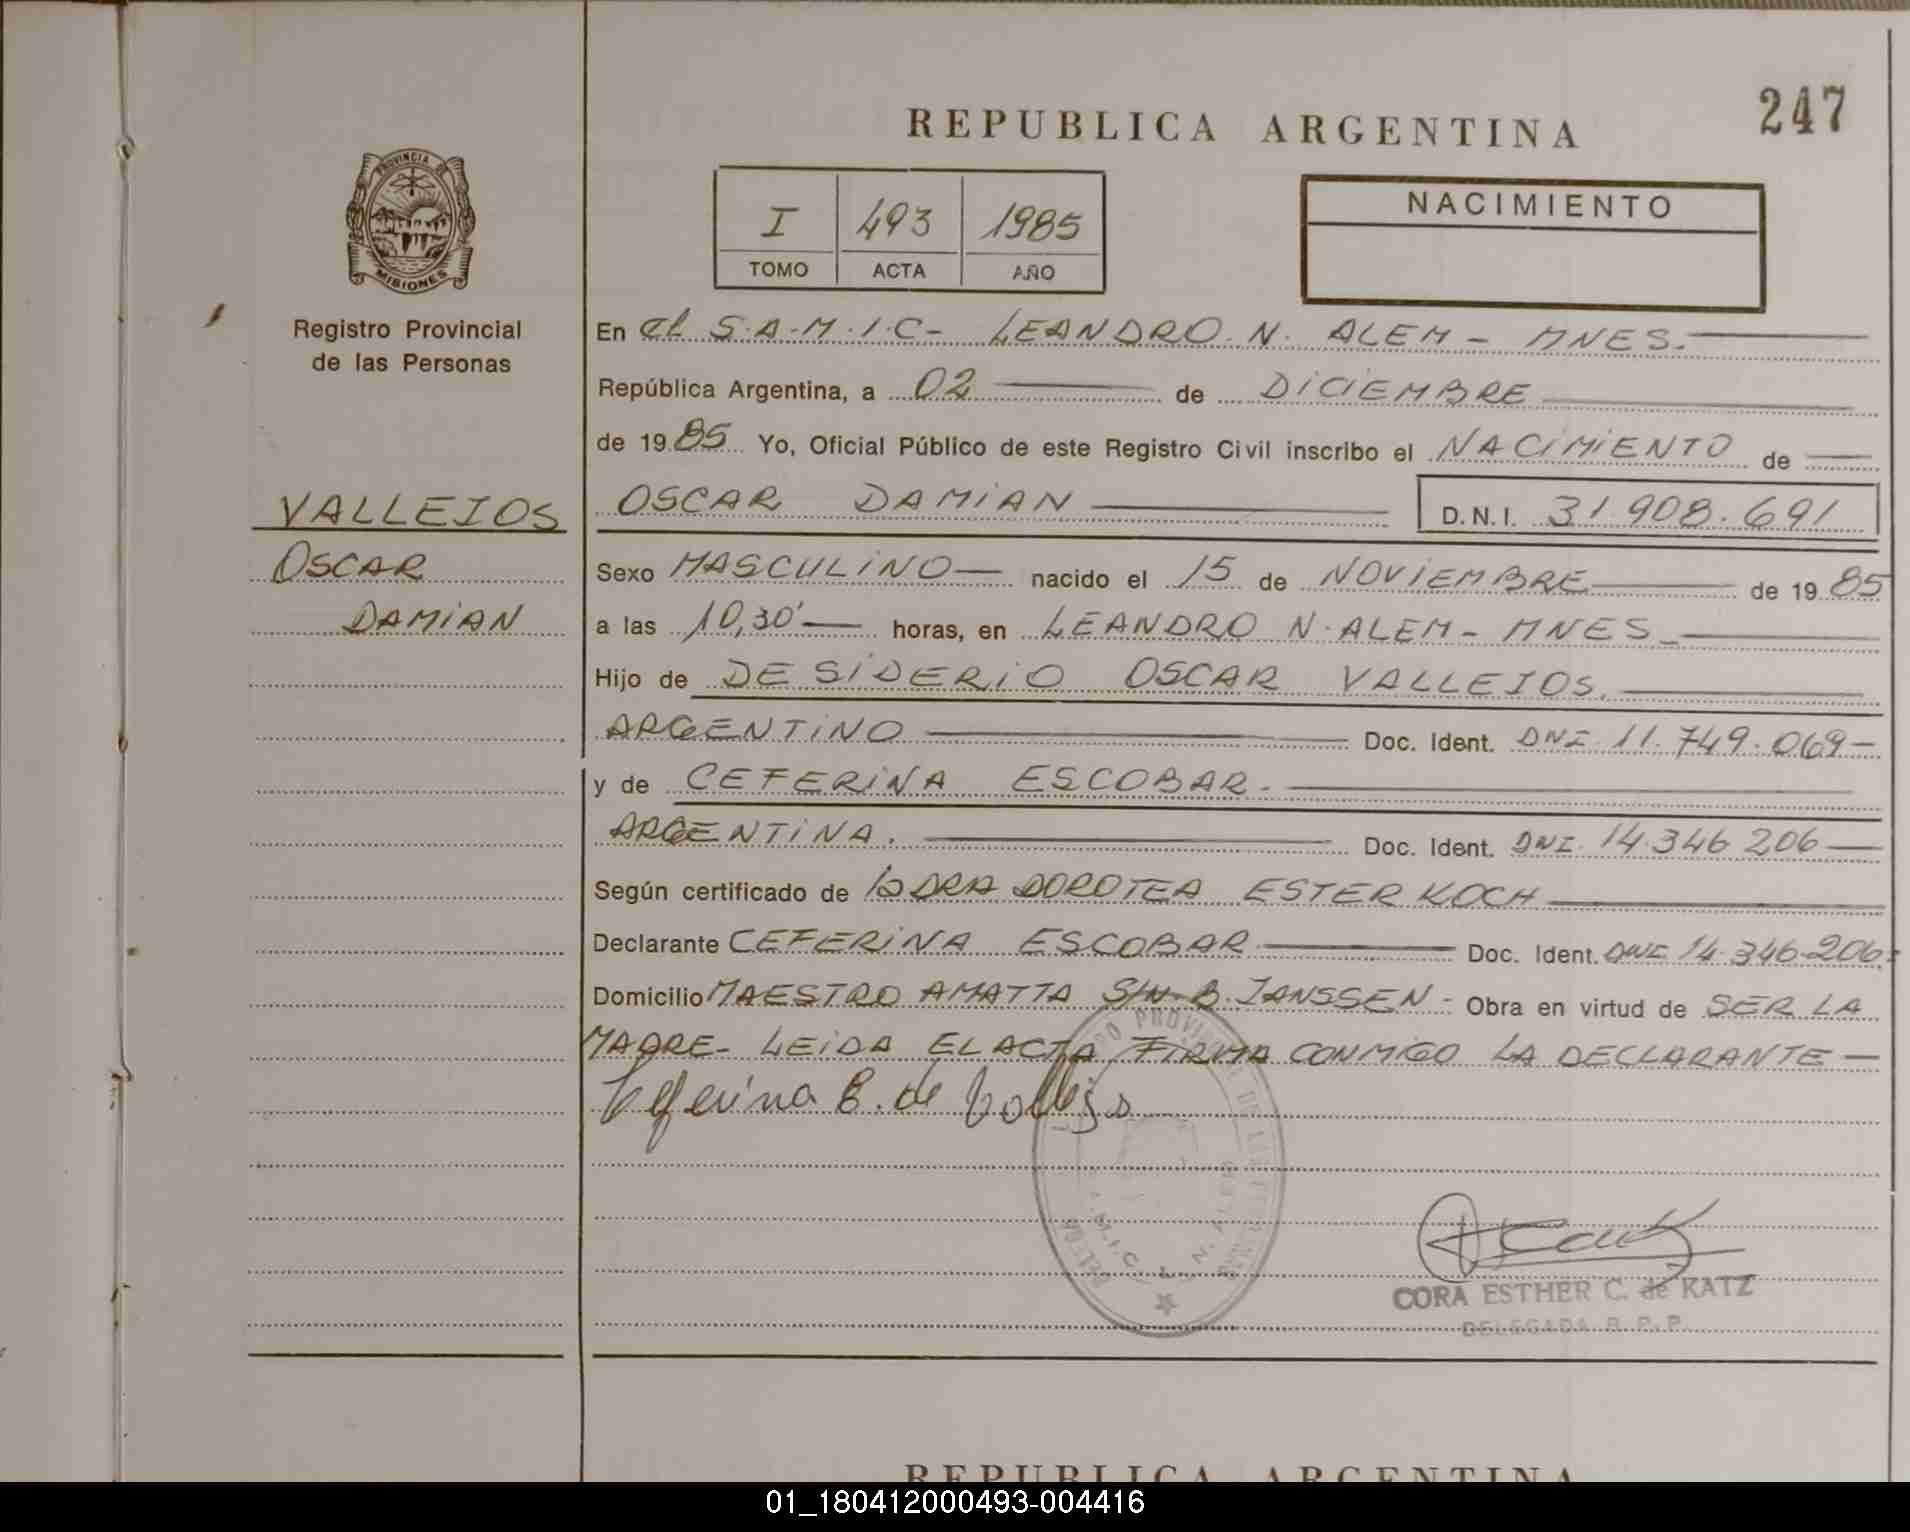 REPUBLICA ARGENTINA
247
PROVINCIA DE
MISIONES
Registro Provincial
de las Personas
I 493 1985
TOMO ACTA AÑO
NACIMIENTO
VALLEJOS
OSCAR
DAMIAN
En el S.A.M.I.C- LEANDRO. N. ALEM - MNES.
República Argentina, a 02 de DICIEMBRE
de 1985 Yo, Oficial Público de este Registro Civil inscribo el NACIMIENTO de
OSCAR DAMIAN D.N.I. 31.908.691
Sexo MASCULINO nacido el 15 de NOVIEMBRE de 1985
a las 10,30' horas, en LEANDRO N. ALEM - MNES
Hijo de DESIDERIO OSCAR VALLEJOS.
ARGENTINO Doc. Ident. DNI 11.749.069-
y de CEFERINA ESCOBAR.
ARGENTINA. Doc. Ident. DNI. 14.346.206
Según certificado de la DRA DOROTEA ESTER KOCH
Declarante CEFERINA ESCOBAR Doc. Ident. DNI 14.346.206
Domicilio MAESTRO AMATTA S/N. B. JANSSEN - Obra en virtud de SER LA
MADRE- LEIDA EL ACTA FIRMA CONMIGO LA DECLARANTE
Ceferina E. de Vallejos
CORA ESTHER C. de KATZ
DELEGADA R.P.P.
REPUBLICA ARGENTINA
01_180412000493-004416